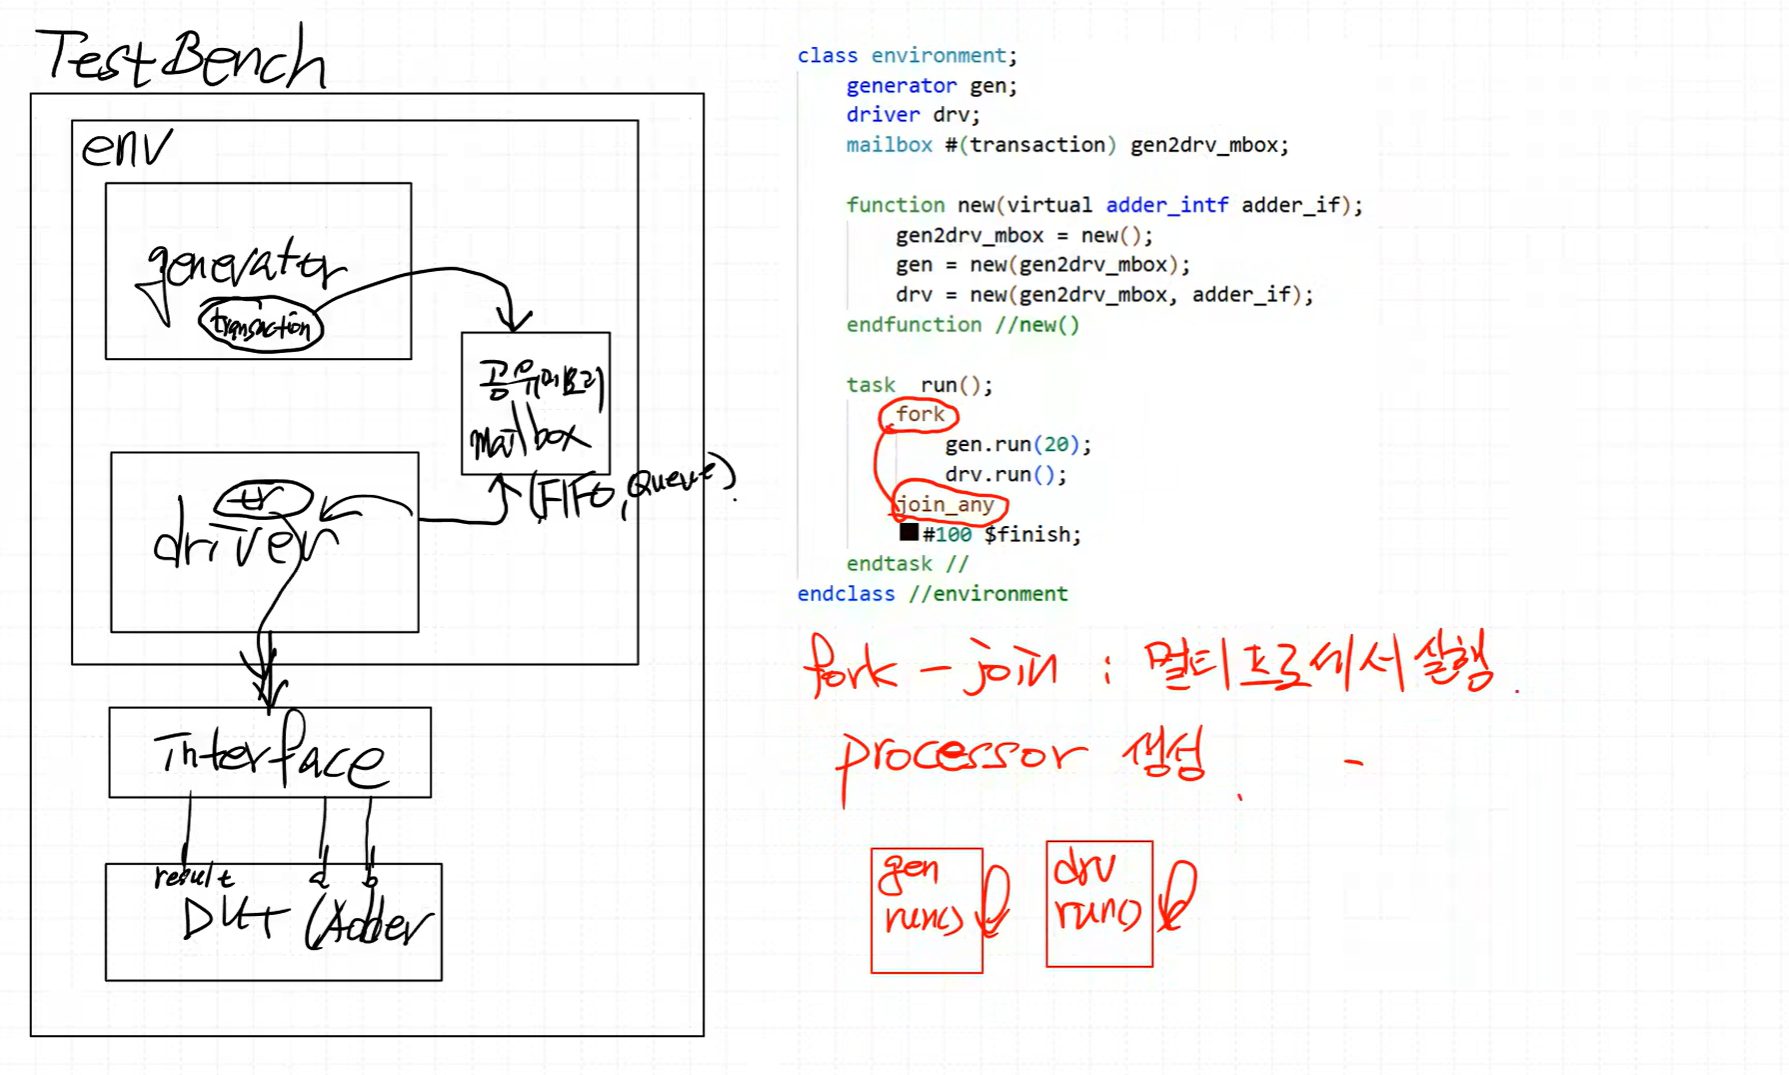 TestBench
env
generator
transaction
공유메모리
mailbox
(FIFO, Queue).
tr
driver
interface
result a b
DUT (Adder
class environment;
generator gen;
driver drv;
mailbox #(transaction) gen2drv_mbox;
function new(virtual adder_intf adder_if);
gen2drv_mbox = new();
gen = new(gen2drv_mbox);
drv = new(gen2drv_mbox, adder_if);
endfunction //new()
task run();
fork
gen.run(20);
drv.run();
join_any
#100 $finish;
endtask //
endclass //environment
fork - join : 멀티프로세서 실행.
processor 생성. -
gen
run()
drv
run()